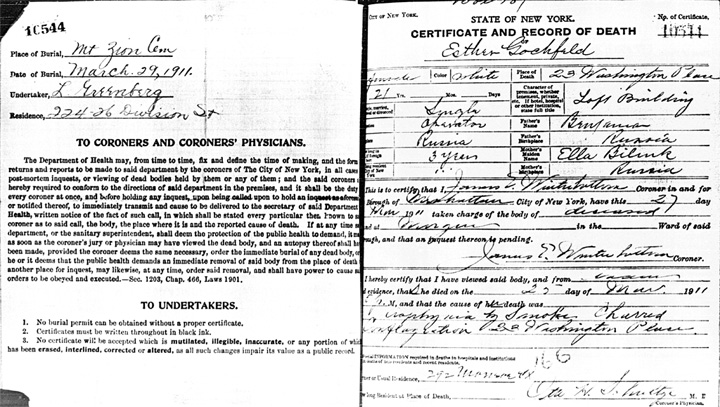 10544
Place of Burial, Mt Zion Cem
Date of Burial, March 29, 1911.
Undertaker, L Greenberg
Residence, 224-26 Division St
TO CORONERS AND CORONERS' PHYSICIANS.
The Department of Health may, from time to time, fix and define the time of making, and the form
returns and reports to be made to said department by the coroners of The City of New York, in all cases
post-mortem inquests, or viewing of dead bodies held by them or any of them; and the said coroners
hereby required to conform to the directions of said department in the premises, and it shall be the duty
every coroner at once, and before holding any inquest, upon being called upon to hold an inquest
or notified thereof, to immediately transmit and cause to be delivered to the secretary of said Department
Health, written notice of the fact of such call, in which shall be stated every particular then known to
coroner as to said call, the body, the place where it is and the reported cause of death. If at any time
department, or the sanitary superintendent, shall deem the protection of the public health to demand, it
as soon as the coroner's jury or physician may have viewed the dead body, and an autopsy thereof shall
been made, provided the coroner deems the same necessary, order the immediate burial of any dead body, or
he or it deems that the public health demands an immediate removal of said body from the place of death
another place for inquest, may likewise, at any time, order said removal, and shall have power to cause
orders to be obeyed and executed.—Sec. 1203, Chap. 466, Laws 1901.
TO UNDERTAKERS.
1. No burial permit can be obtained without a proper certificate.
2. Certificates must be written throughout in black ink.
3. No certificate will be accepted which is mutilated, illegible, inaccurate, or any portion of which
has been erased, interlined, corrected or altered, as all such changes impair its value as a public record.
CITY OF NEW YORK.
STATE OF NEW YORK.
No. of Certificate,
CERTIFICATE AND RECORD OF DEATH
10544
Esther Gochfeld
Color White Place of Death 23 Washington Place
21 Yrs. Mos. Days
Character of premises, whether tenement, private, etc. If hotel, hospital or other institution, state full title
Loft Building
Single
Operator Father's Name Benjamin
Russia Father's Birthplace Russia
3 years Mother's Maiden Name Ella
Mother's Birthplace Russia
This is to certify that I, James E. Winterbottom Coroner in and for
Borough of Manhattan City of New York, have this 27 day
Mar 1911 taken charge of the body of deceased
at Morgue in the Ward of said
and that an inquest thereon is pending.
James E. Winterbottom Coroner.
I hereby certify that I have viewed said body, and from
evidence, that she died on the 25 day of Mar. 1911
M, and that the cause of her death was
Asphyxia by Smoke Charred
Conflagration 23 Washington Place
INFORMATION required in deaths in hospitals and institutions
Usual Residence, 292 Monroe St
Resident at Place of Death,
Otto H. Schultze M. D.
Coroner's Physician.